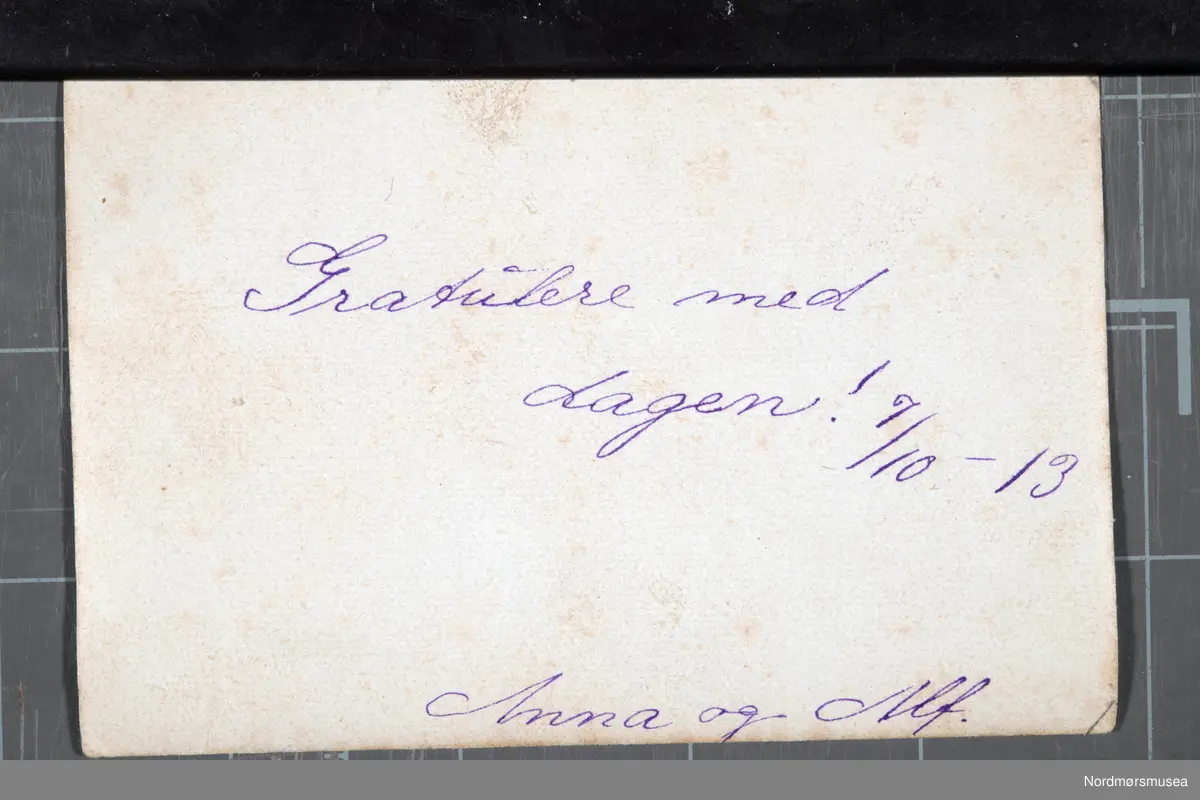 Gratulere med
dagen! 7/10 - 13
Anna og Alf.
Nordmørsmusea